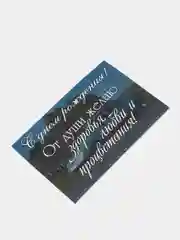 С днем рождения!
От души желаю
здоровья,
любви и
процветания!